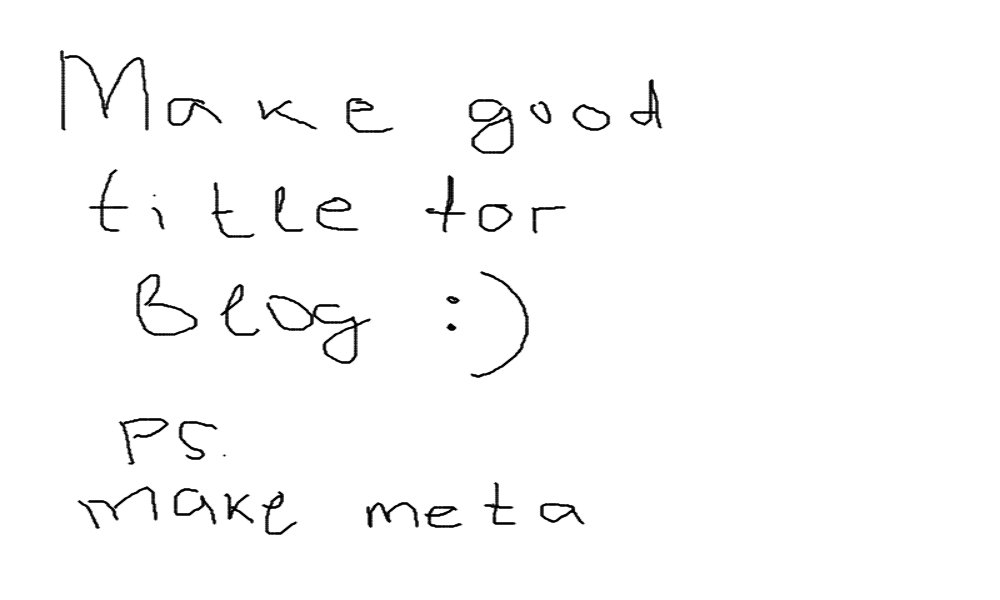 Make good
title for
Blog :)
PS.
make meta